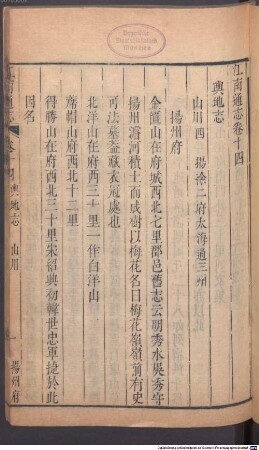 江南通志卷十四
輿地志
山川四 揚徐二府太海通三州
揚州府
金匱山在府城西北七里郡邑舊志云明秀水吳秀守
揚州濬河積土而成樹以梅花名曰梅花嶺嶺前有史
可法墓蓋藏衣冠處也
北洋山在府西北三十里一作白洋山
席帽山府西北十二里
得勝山在府西北三十里宋紹興初韓世忠軍捷於此
因名
江南通志
卷十四 輿地志 山川
一
揚州府